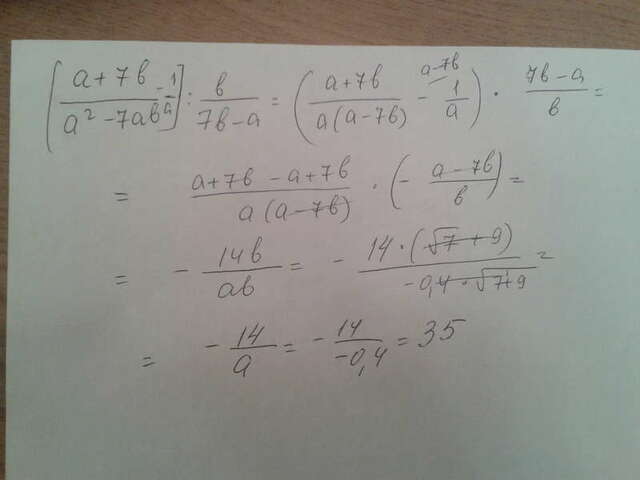 [(a+7b)/(a²-7ab) - 1/a] : b/(7b-a) = ((a+7b)/(a(a-7b)) - 1/a ^(a-7b)) · (7b-a)/b =
= (a+7b-a+7b)/(a(a-7b)) · (- (a-7b)/b) =
= - 14b/ab = - 14·(√7+9)/(-0,4·√7+9) =
= - 14/a = - 14/-0,4 = 35